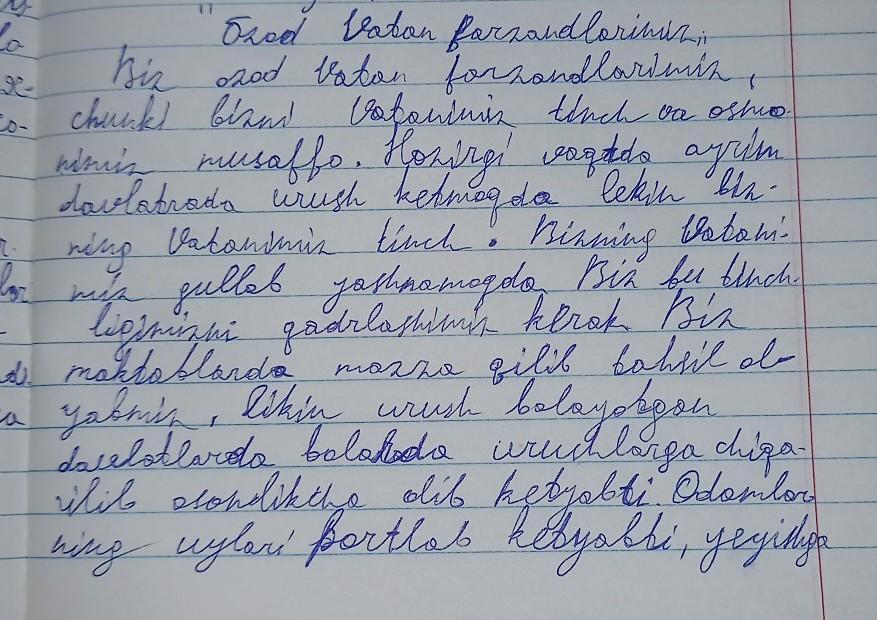 "Ozod Vatan farzandlarimiz"
Biz ozod Vatan farzandlarimiz,
chunki bizni Vatanimiz tinch va osmo-
nimiz musaffo. Hozirgi vaqtda ayrim
davlatrada urush ketmoqda lekin biz-
ning Vatanimiz tinch. Bizning Vatani-
miz gullab yashnamoqda Biz bu tinch-
ligimizni qadrlashimiz kerak Biz
maktablarda mazza qilib tahsil ol-
yabmiz, likin urush bolayotgan
davlatlarda bolalada urushlarga chiqa-
rilib osonlikcha olib ketyabti. Odamlar
ning uylari portlab ketyabti, yeyishga